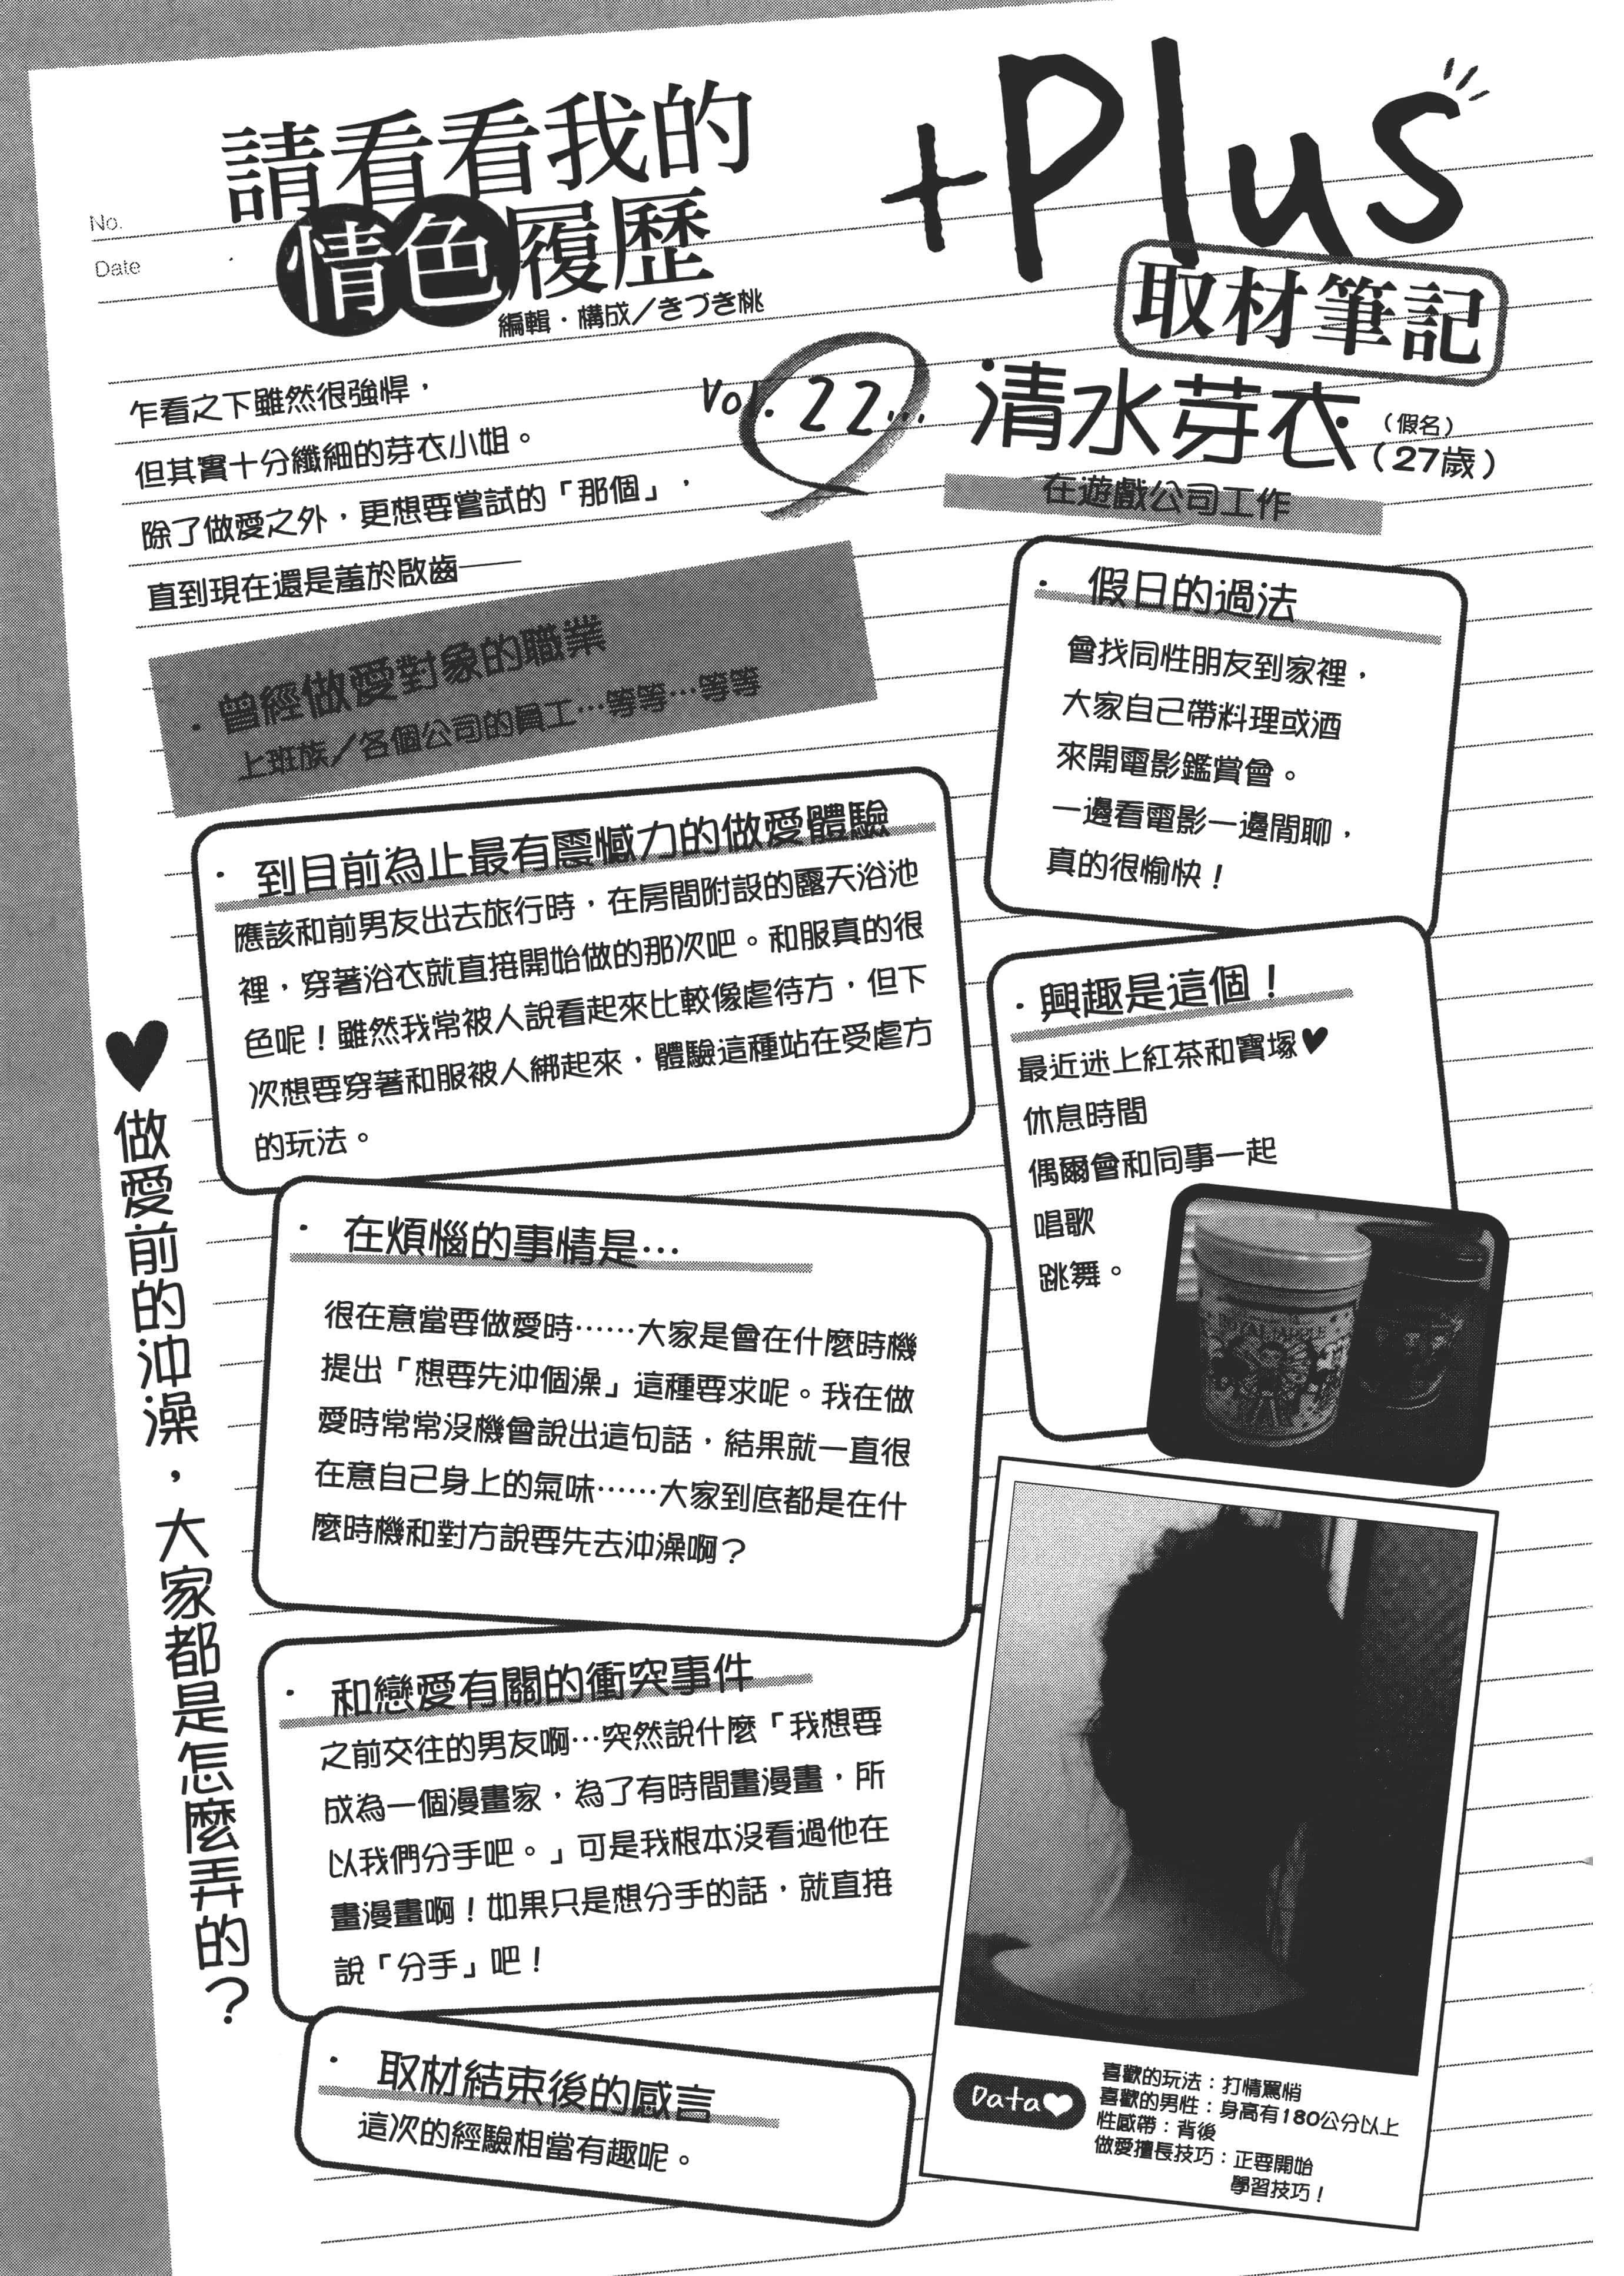 No.
Date
請看看我的
情色履歷
編輯・構成／きづき桃
+Plus
取材筆記
Vol. 22…
清水芽衣（假名）
（27歲）
在遊戲公司工作
乍看之下雖然很強悍，
但其實十分纖細的芽衣小姐。
除了做愛之外，更想要嘗試的「那個」，
直到現在還是羞於啟齒——
・曾經做愛對象的職業
上班族／各個公司的員工…等等…等等
・到目前為止最有震憾力的做愛體驗
應該和前男友出去旅行時，在房間附設的露天浴池
裡，穿著浴衣就直接開始做的那次吧。和服真的很
色呢！雖然我常被人說看起來比較像虐待方，但下
次想要穿著和服被人綁起來，體驗這種站在受虐方
的玩法。
・在煩惱的事情是…
很在意當要做愛時……大家是會在什麼時機
提出「想要先沖個澡」這種要求呢。我在做
愛時常常沒機會說出這句話，結果就一直很
在意自己身上的氣味……大家到底都是在什
麼時機和對方說要先去沖澡啊？
・和戀愛有關的衝突事件
之前交往的男友啊…突然說什麼「我想要
成為一個漫畫家，為了有時間畫漫畫，所
以我們分手吧。」可是我根本沒看過他在
畫漫畫啊！如果只是想分手的話，就直接
說「分手」吧！
・取材結束後的感言
這次的經驗相當有趣呢。
♥做愛前的沖澡，大家都是怎麼弄的？
・假日的過法
會找同性朋友到家裡，
大家自己帶料理或酒
來開電影鑑賞會。
一邊看電影一邊閒聊，
真的很愉快！
・興趣是這個！
最近迷上紅茶和寶塚♥
休息時間
偶爾會和同事一起
唱歌
跳舞。
Data♥
喜歡的玩法：打情罵悄
喜歡的男性：身高有180公分以上
性感帶：背後
做愛擅長技巧：正要開始
學習技巧！